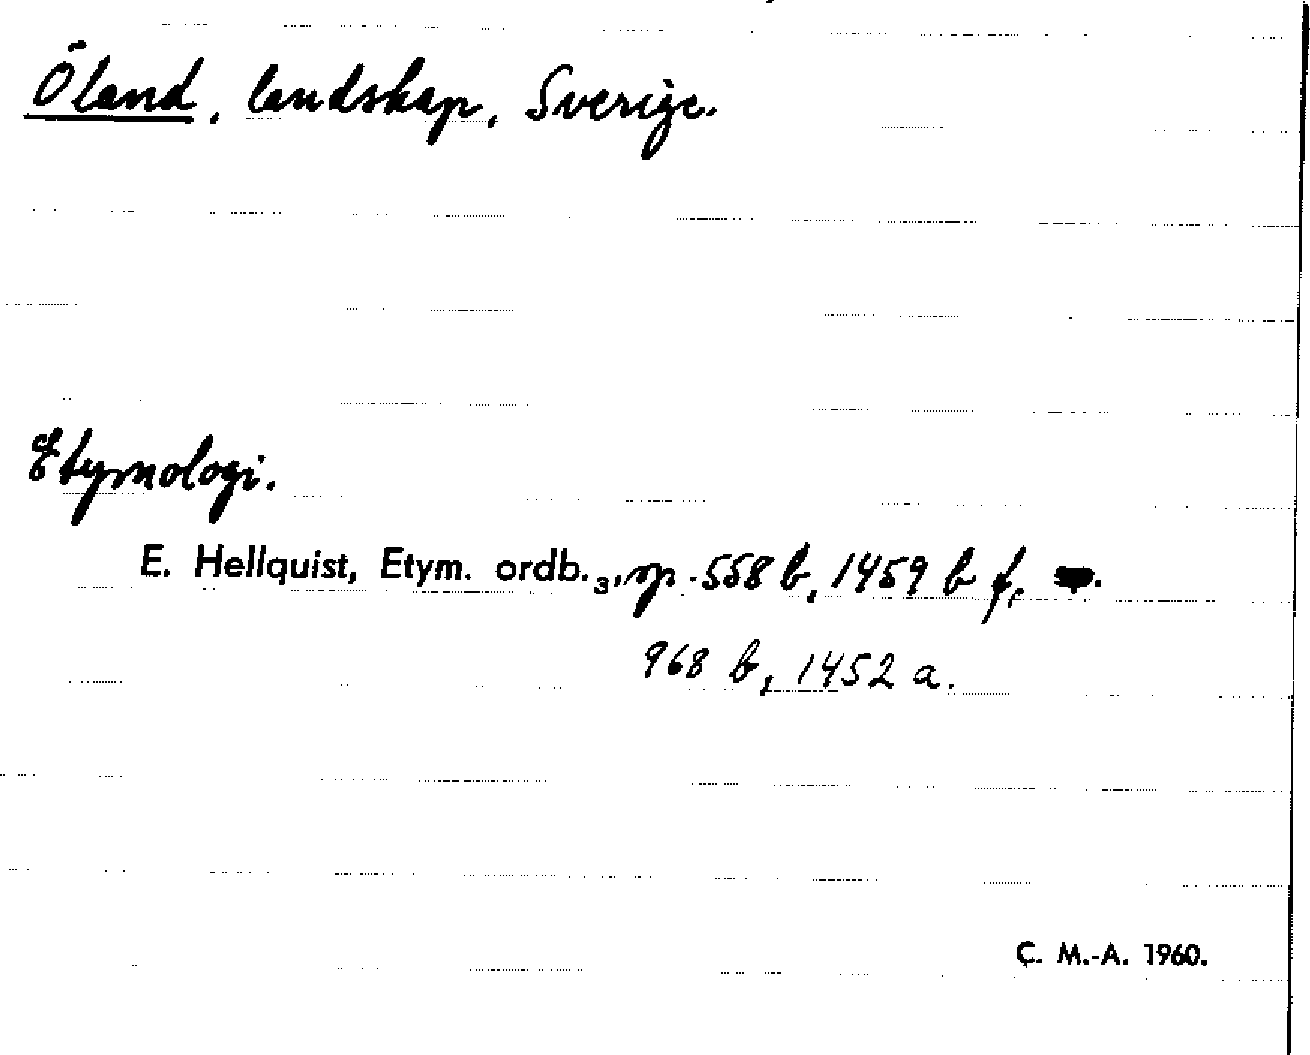 Öland, landskap, Sverige.
Etymologi.
E. Hellquist, Etym. ordb.₃, sp. 558 b, 1459 b f,
968 b, 1452 a.
C. M.-A. 1960.